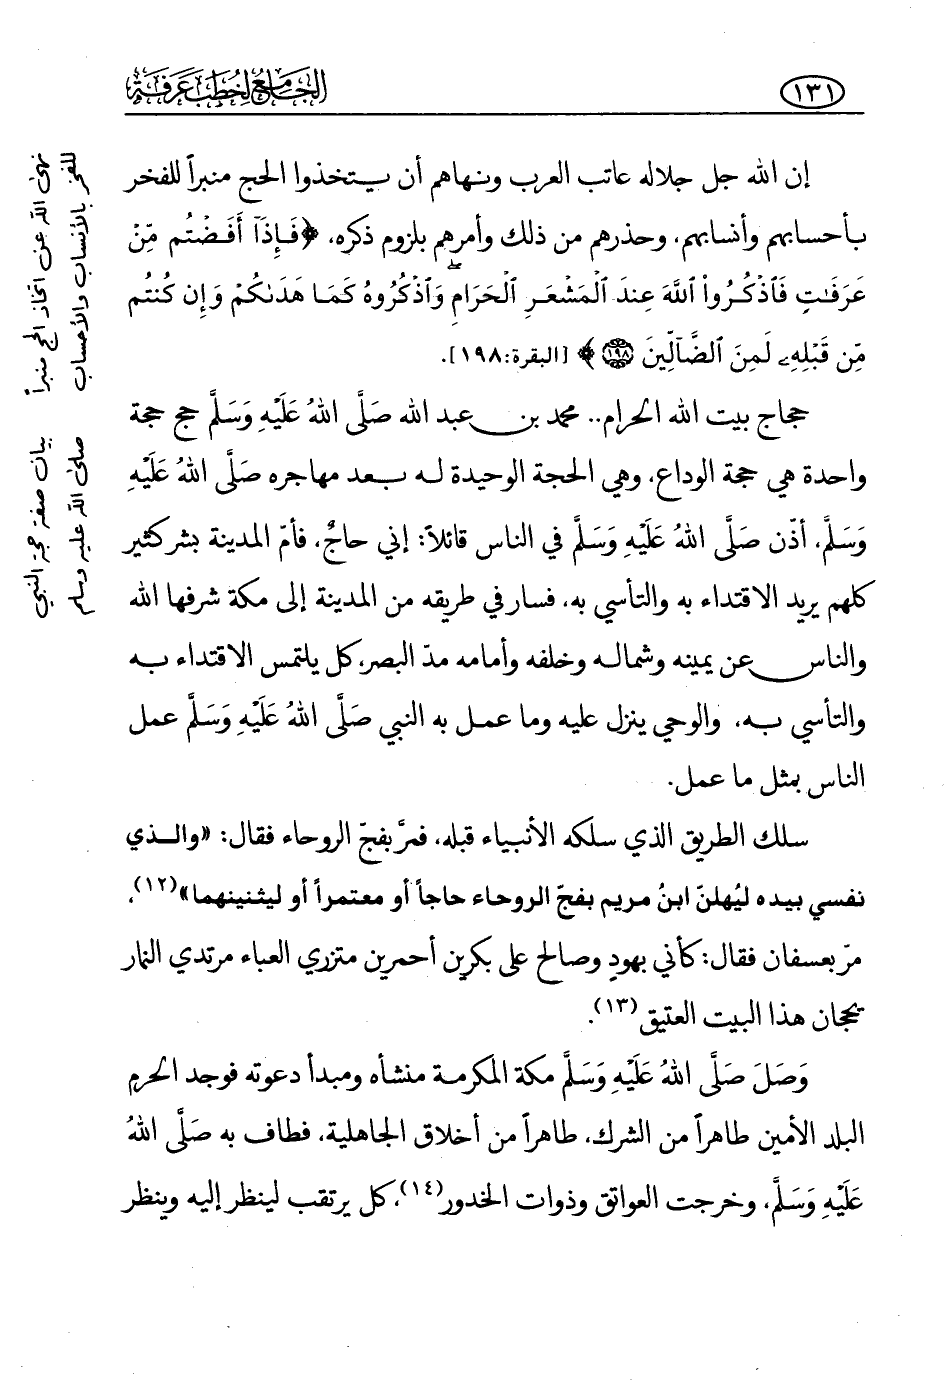 ١٣١
الجامع لخطب عرفة
إن الله جل جلاله عاتب العرب ونهاهم أن يتخذوا الحج منبراً للفخر
بأحسابهم وأنسابهم، وحذرهم من ذلك وأمرهم بلزوم ذكره، ﴿فَإِذَآ أَفَضۡتُم مِّنۡ
عَرَفَٰتٖ فَٱذۡكُرُواْ ٱللَّهَ عِندَ ٱلۡمَشۡعَرِ ٱلۡحَرَامِۖ وَٱذۡكُرُوهُ كَمَا هَدَىٰكُمۡ وَإِن كُنتُم
مِّن قَبۡلِهِۦ لَمِنَ ٱلضَّآلِّينَ ١٩٨﴾ [البقرة:١٩٨].
حجاج بيت الله الحرام.. محمد بن عبد الله صَلَّى اللهُ عَلَيْهِ وَسَلَّمَ حج حجة
واحدة هي حجة الوداع، وهي الحجة الوحيدة له بعد مهاجره صَلَّى اللهُ عَلَيْهِ
وَسَلَّمَ، أذّن صَلَّى اللهُ عَلَيْهِ وَسَلَّمَ في الناس قائلاً: إني حاجٌ، فأمّ المدينة بشر كثير
كلهم يريد الاقتداء به والتأسي به، فسار في طريقه من المدينة إلى مكة شرفها الله
والناس عن يمينه وشماله وخلفه وأمامه مدّ البصر، كل يلتمس الاقتداء به
والتأسي به، والوحي ينزل عليه وما عمل به النبي صَلَّى اللهُ عَلَيْهِ وَسَلَّمَ عمل
الناس بمثل ما عمل.
سلك الطريق الذي سلكه الأنبياء قبله، فمرَّ بفجّ الروحاء فقال: «والذي
نفسي بيده ليُهلنّ ابنُ مريم بفجّ الروحاء حاجاً أو معتمراً أو ليثنينهما»(١٢)،
مرّ بعسفان فقال: كأني بهودٍ وصالح على بكرين أحمرين متزري العباء مرتدي النمار
يحجان هذا البيت العتيق(١٣).
وَصَلَ صَلَّى اللهُ عَلَيْهِ وَسَلَّمَ مكة المكرمة منشأه ومبدأ دعوته فوجد الحرم
البلد الأمين طاهراً من الشرك، طاهراً من أخلاق الجاهلية، فطاف به صَلَّى اللهُ
عَلَيْهِ وَسَلَّمَ، وخرجت العواتق وذوات الخدور(١٤)، كل يرتقب لينظر إليه وينظر
نهى الله عن اتخاذ الحج منبراً
للفخر بالأنساب والأحساب
بيان صفة حجة النبي
صلى الله عليه وسلم